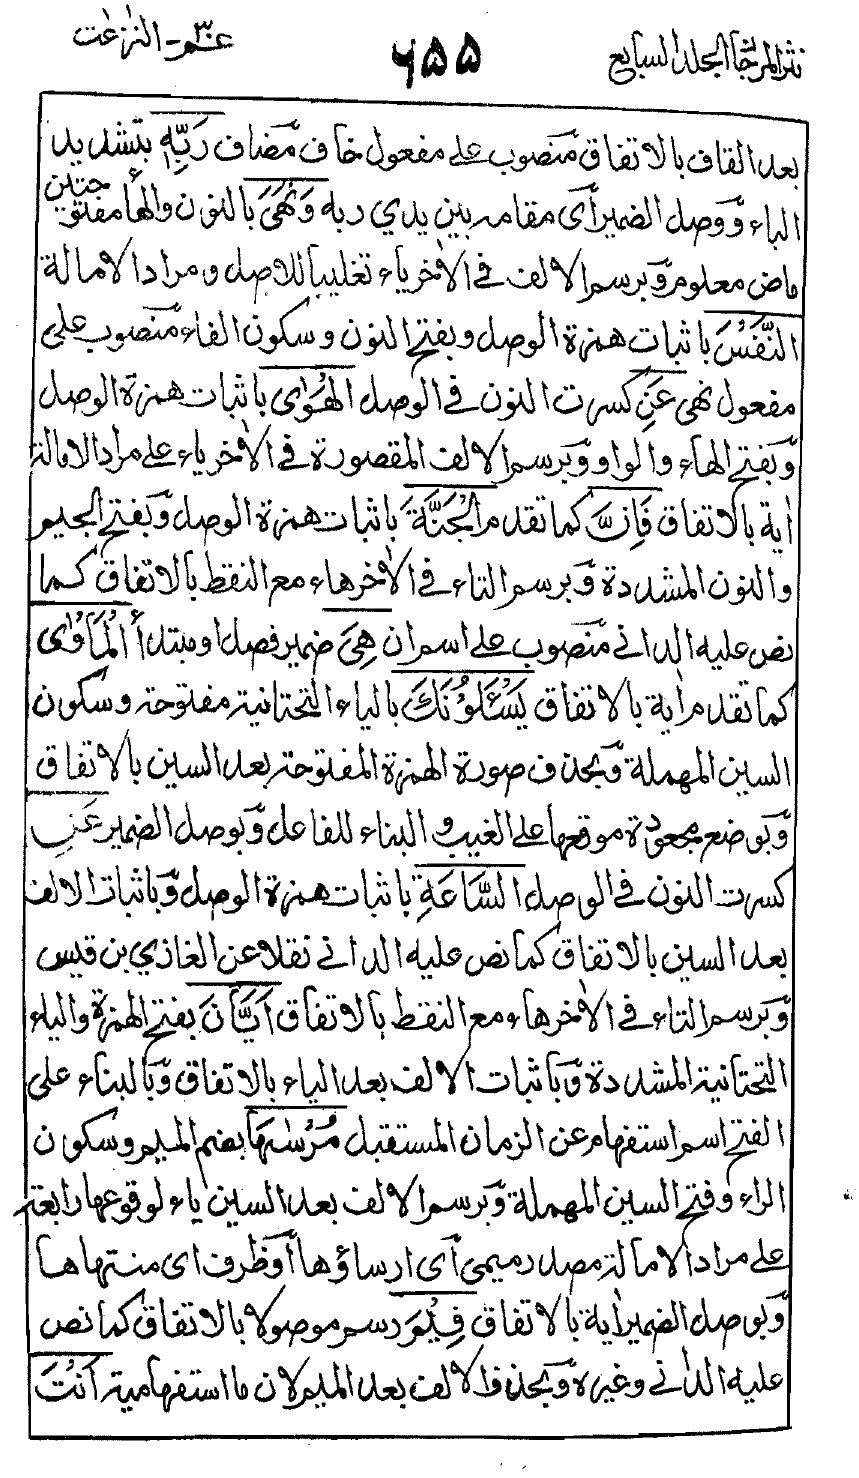 نثر المرجان المجلد السابع ٦٥٥ عم ٣٠ - النزعت
بعد القاف بالاتفاق منصوب على مفعول خاف مضاف رَبِّهٖ بتشديد
الباء ووصل الضمير أى مقامه بين يدي ربه وَنَهَى بالنون والهاء مفتوحتين
ماض معلوم وبرسم الالف في الاخر ياء تغليبا للاصل ومراد الامالة
النَّفْسَ باثبات همزة الوصل وبفتح النون وسكون الفاء منصوب على
مفعول نهى عَنِ كسرت النون في الوصل الْهَوٰى باثبات همزة الوصل
وبفتح الهاء والواو وبرسم الالف المقصورة في الاخر ياء على مراد الامالة
اٰية بالاتفاق فَاِنَّ كما تقدم الْجَنَّةَ باثبات همزة الوصل وبفتح الجيم
والنون المشددة وبرسم التاء في الاخر هاء مع النقط بالاتفاق كما
نص عليه الداني منصوب على اسم ان هِىَ ضمير فصل او مبتدأ الْمَأْوٰى
كما تقدم اٰية بالاتفاق يَسْئَلُوْنَكَ بالياء التحتانية مفتوحة وسكون
السين المهملة وبحذف صورة الهمزة المفتوحة بعد السين بالاتفاق
وبوضع مجعودة موقعها على الغيب والبناء للفاعل وبوصل الضمير عَنِ
كسرت النون في الوصل السَّاعَةِ باثبات همزة الوصل وباثبات الالف
بعد السين بالاتفاق كما نص عليه الداني نقلا عن الغازي بن قيس
وبرسم التاء في الاخر هاء مع النقط بالاتفاق اَيَّانَ بفتح الهمزة والياء
التحتانية المشددة وباثبات الالف بعد الياء بالاتفاق وبالبناء على
الفتح اسم استفهام عن الزمان المستقبل مُرْسٰىهَا بضم الميم وسكون
الراء وفتح السين المهملة وبرسم الالف بعد السين ياء لوقوعها رابعة
على مراد الامالة مصدر ميمي أى ارساؤها أو ظرف اى منتهاها
وبوصل الضمير اٰية بالاتفاق فِيْمَ رسم موصولا بالاتفاق كما نص
عليه الداني وغيره وبحذف الالف بعد الميم لان ما استفهامية اَنْتَ